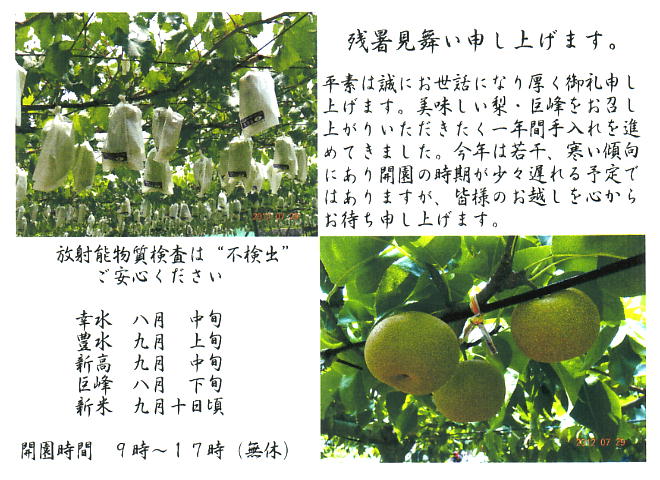 残暑見舞い申し上げます。
平素は誠にお世話になり厚く御礼申し
上げます。美味しい梨・巨峰をお召し
上がりいただきたく一年間手入れを進
めてきました。今年は若干、寒い傾向
にあり開園の時期が少々遅れる予定で
はありますが、皆様のお越しを心から
お待ち申し上げます。
放射能物質検査は“不検出”
ご安心ください
幸水 八月 中旬
豊水 九月 上旬
新高 九月 中旬
巨峰 八月 下旬
新米 九月十日頃
開園時間 9時～17時(無休)
2012 07 29